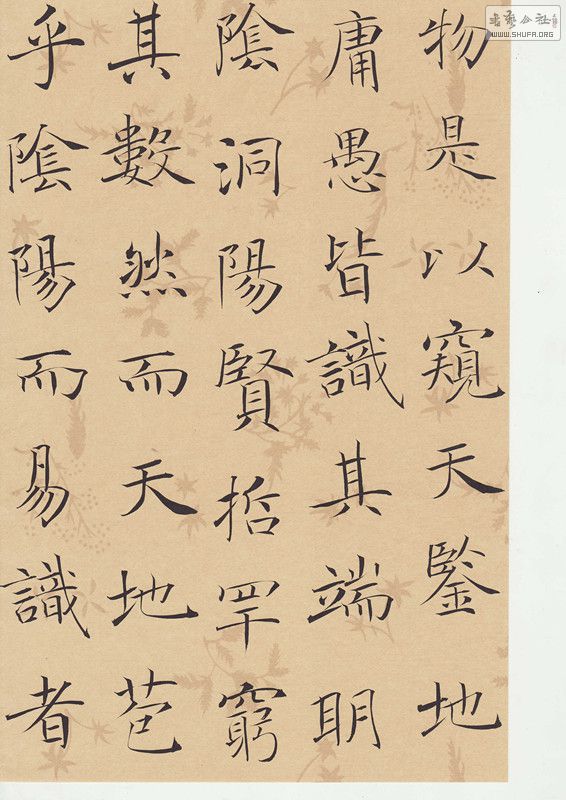 物是以窺天鑒地
庸愚皆識其端明
陰洞陽賢哲罕窮
其數然而天地苞
乎陰陽而易識者
書藝公社
WWW.SHUFA.ORG